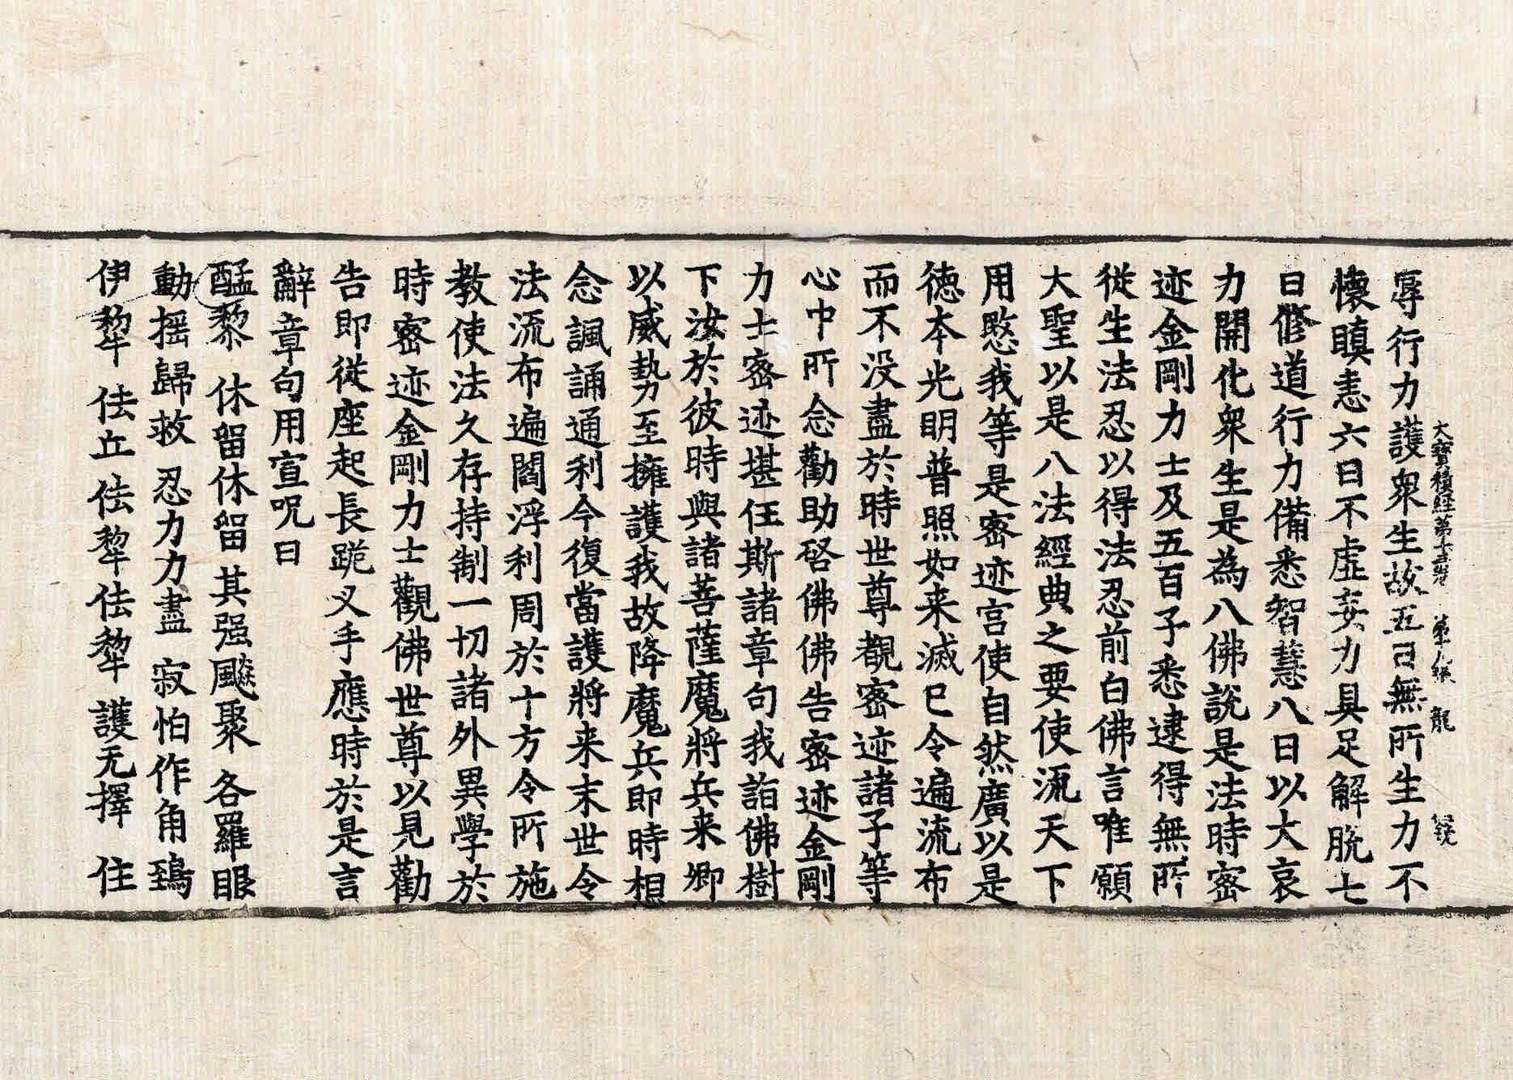 大寶積經第十四卷 第十八張 龍
辱行力護衆生故五曰無所生力不
懷瞋恚六曰不虛妄力具足解脫七
曰修道行力備悉智慧八曰以大哀
力開化衆生是為八佛說是法時密
迹金剛力士及五百子悉逮得無所
從生法忍以得法忍前白佛言唯願
大聖以是八法經典之要使流天下
用愍我等是密迹宮使自然廣以是
德本光明普照如来滅已令遍流布
而不没盡於時世尊觀密迹諸子等
心中所念勸助啓佛佛告密迹金剛
力士密迹堪任斯諸章句我詣佛樹
下汝於彼時與諸菩薩魔將兵来卿
以威勢至擁護我故降魔兵即時相
念諷誦通利今復當護將来末世令
法流布遍閻浮利周於十方令所施
教使法久存持制一切諸外異學於
時密迹金剛力士觀佛世尊以見勸
告即從座起長跪叉手應時於是言
辭章句用宣呪曰
醯黎 休留休留 其强颰聚 各羅眼
動摇歸救 忍力力盡 寂怕作角鵄
伊犂 佉丘 佉犂佉犂 護无擇 住